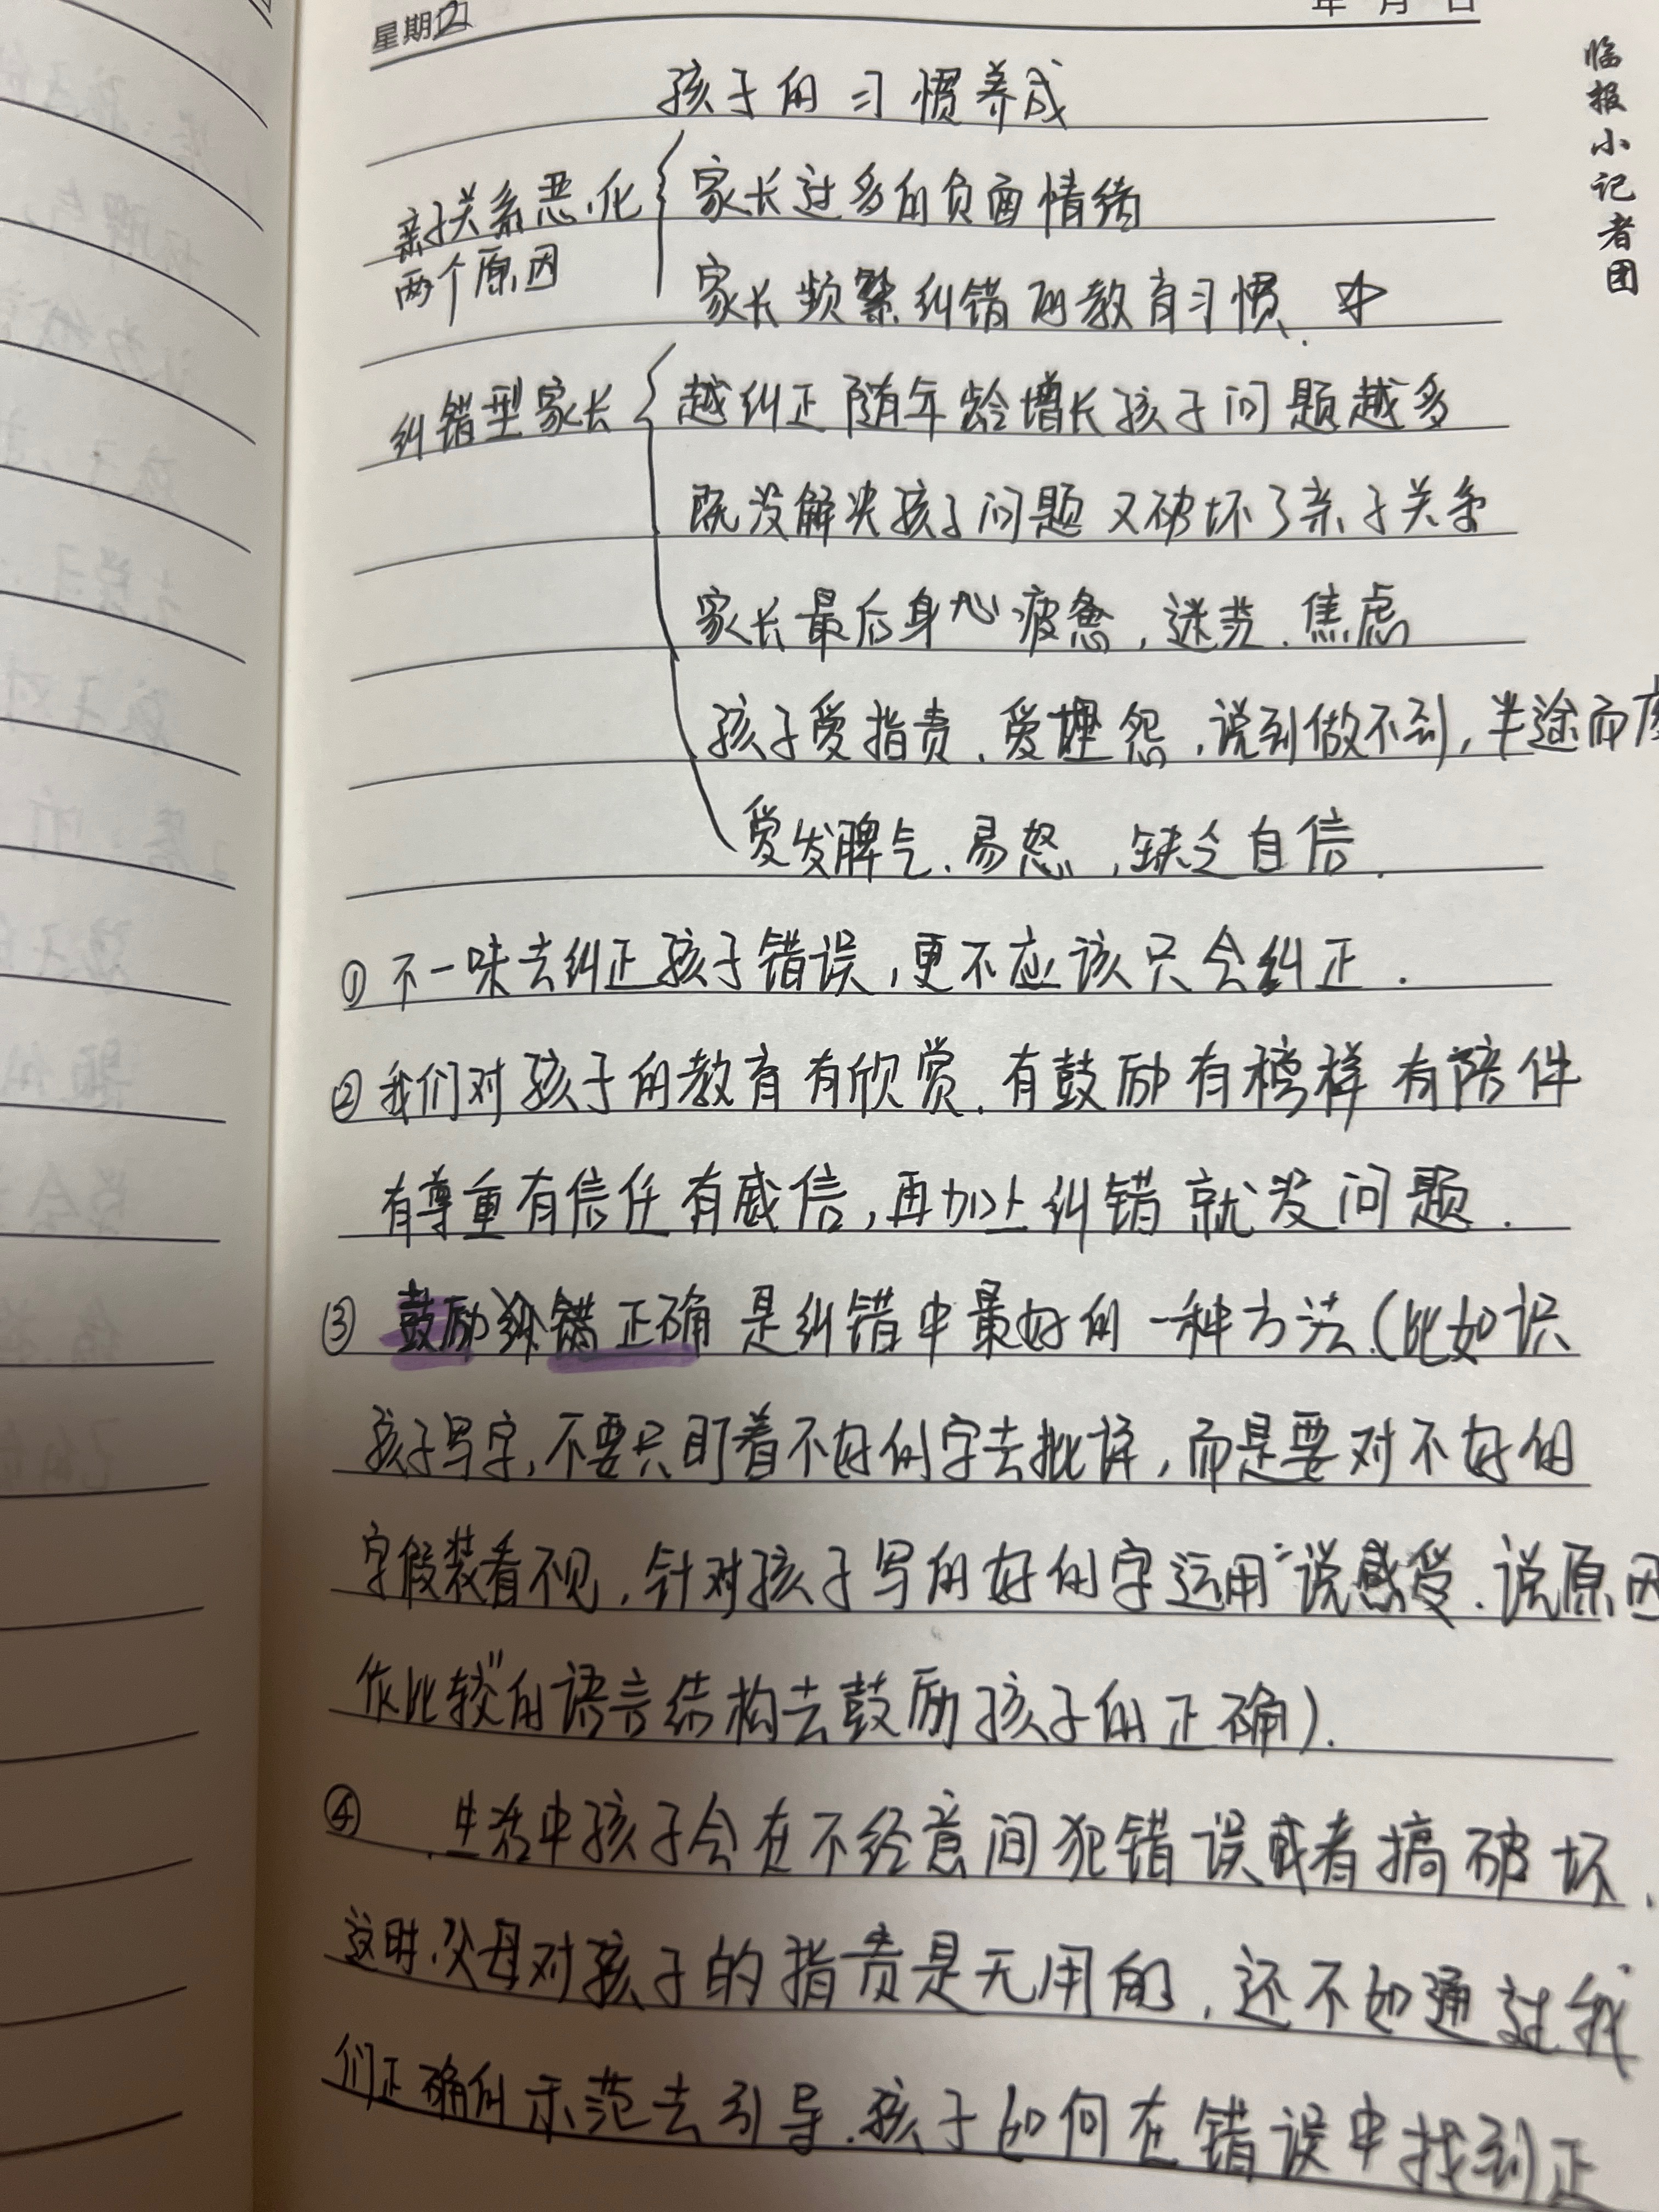 星期四
年 月 日
临报小记者团
孩子的习惯养成
亲子关系恶化 家长过多的负面情绪
两个原因 家长频繁纠错的教育习惯.
纠错型家长 越纠正随年龄增长孩子问题越多
既没解决孩子问题 又破坏了亲子关系
家长最后身心疲惫,迷茫.焦虑
孩子爱指责.爱埋怨,说到做不到,半途而
爱发脾气.易怒,缺乏自信.
①不一味去纠正孩子错误,更不应该只会纠正.
②我们对孩子的教育有欣赏.有鼓励有榜样有陪伴
有尊重有信任有威信,再加上纠错就没问题.
③鼓励 正确是纠错中最好的一种方法.(比如
孩子写字,不要只盯着不好的字去批评,而是要对不好的
字假装看不见,针对孩子写的好的字运用“说感受.说原因
作比较”的语言结构去鼓励孩子的正确).
④生活中孩子会在不经意间犯错误或者搞破坏.
这时.父母对孩子的指责是无用的,还不如通过我
们正确的示范去引导.孩子如何在错误中找到正